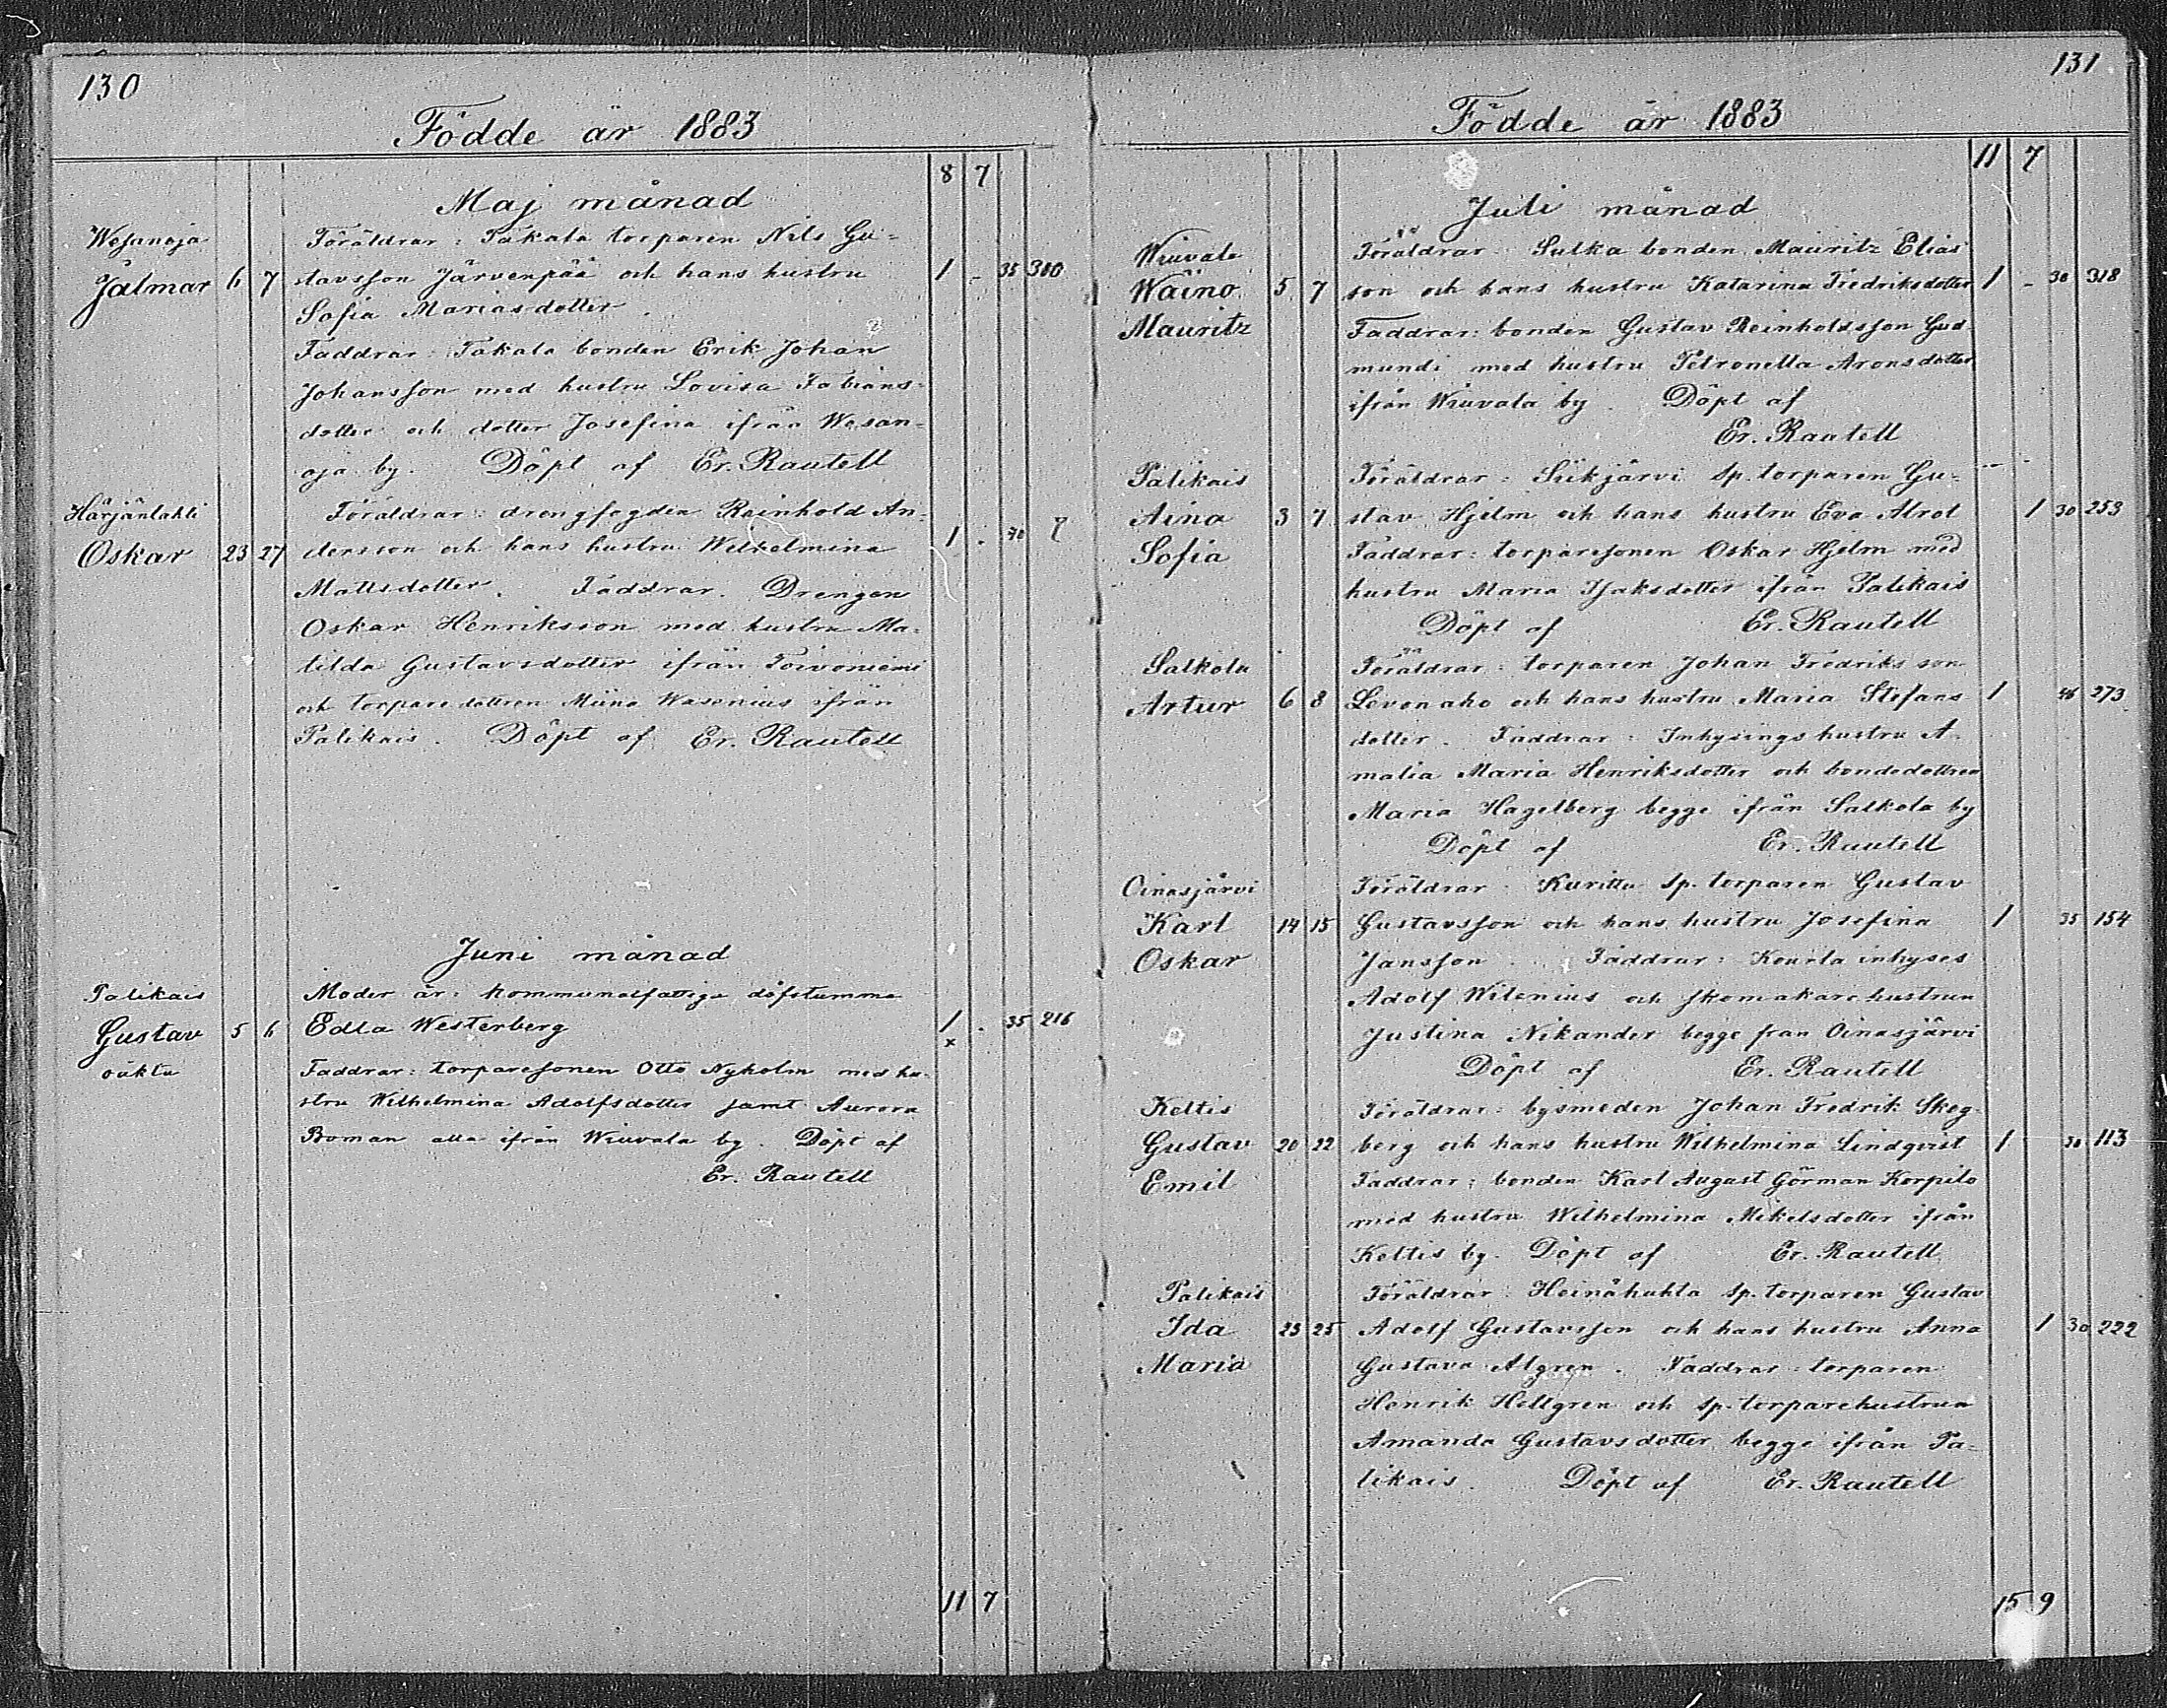 130
Födde år 1883
8 7
Maj månad
Wesanoja
Föräldrar: Takala torparen Nils Gu-
Jalmar 6 7 stavsson Järvenpää och hans hustru 1 - 35 300
Sofia Mariasdotter.
Faddrar: Takala bonden Erik Johan
Johansson med hustru Lovisa Fabians-
dotter och dotter Josefina ifrån Wesan-
oja by. Döpt af Er. Rautell
Härjänlahti
Föräldrar: drengfogden Reinhold An-
Oskar 23 27 dersson och hans hustru Wilhelmina 1 - 40
Mattsdotter. Faddrar. Drengen
Oskar Henriksson med hustru Ma-
tilda Gustavsdotter ifrån Toivoniemi
och torparedottren Miina Wasenius ifrån
Palikais. Döpt af Er. Rautell
Juni månad
Palikais
Moder är: kommunalfattiga döfstumma
Gustav 5 6 Edla Westerberg 1 - 35 216
x
oäkta
Faddrar: torparesonen Otto Nyholm med hu-
stru Wilhelmina Adolfsdotter samt Aurora
Boman alla ifrån Wiuvala by. Döpt af
Er. Rautell
11 7
131
Födde år 1883
11 7
Juli månad
Wiuvala
Föräldrar: Sulka bonden Mauritz Elias
Wäinö 5 7 son och hans hustru Katarina Fredriksdotter 1 - 30 318
Mauritz
Faddrar: bonden Gustav Reinholdsson Gud-
mundi med hustru Petronella Aronsdotter
ifrån Wiuvala by. Döpt af
Er. Rautell
Palikais
Föräldrar: Siikjärvi sp. torparen Gu-
Aina 3 7 stav Hjelm och hans hustru Eva Alrot 1 30 253
Sofia
Faddrar: torparesonen Oskar Hjelm med
hustru Maria Isaksdotter ifrån Palikais
Döpt af Er. Rautell
Salkola
Föräldrar: torparen Johan Fredriks son
Artur 6 8 Levonaho och hans hustru Maria Stefans 1 46 273
dotter. Faddrar: Inhysings hustru A-
malia Maria Henriksdotter och bondedottren
Maria Hagelberg begge ifrån Salkola by
Döpt af Er. Rautell
Oinasjärvi
Föräldrar: Kurittu sp. torparen Gustav
Karl 14 15 Gustavsson och hans hustru Josefina 1 35 154
Oskar
Jansson. Faddrar: Kourla inhyses
Adolf Wilenius och skomakare hustrun
Justina Nikander begge från Oinasjärvi
Döpt af Er. Rautell
Keltis
Föräldrar: bysmeden Johan Fredrik Skog-
Gustav 20 22 berg och hans hustru Wilhelmina Lindqvist 1 36 113
Emil
Faddrar: bonden Karl August Görman Korpilo
med hustru Wilhelmina Mikelsdotter ifrån
Keltis by. Döpt af Er. Rautell
Palikais
Föräldrar: Heinähuhta sp. torparen Gustav
Ida 23 25 Adolf Gustavsson och hans hustru Anna 1 30 222
Maria
Gustava Algren. Faddrar: torparen
Henrik Hellgren och sp. torparehustrun
Amanda Gustavsdotter begge ifrån Pa-
likais. Döpt af Er. Rautell
15 9